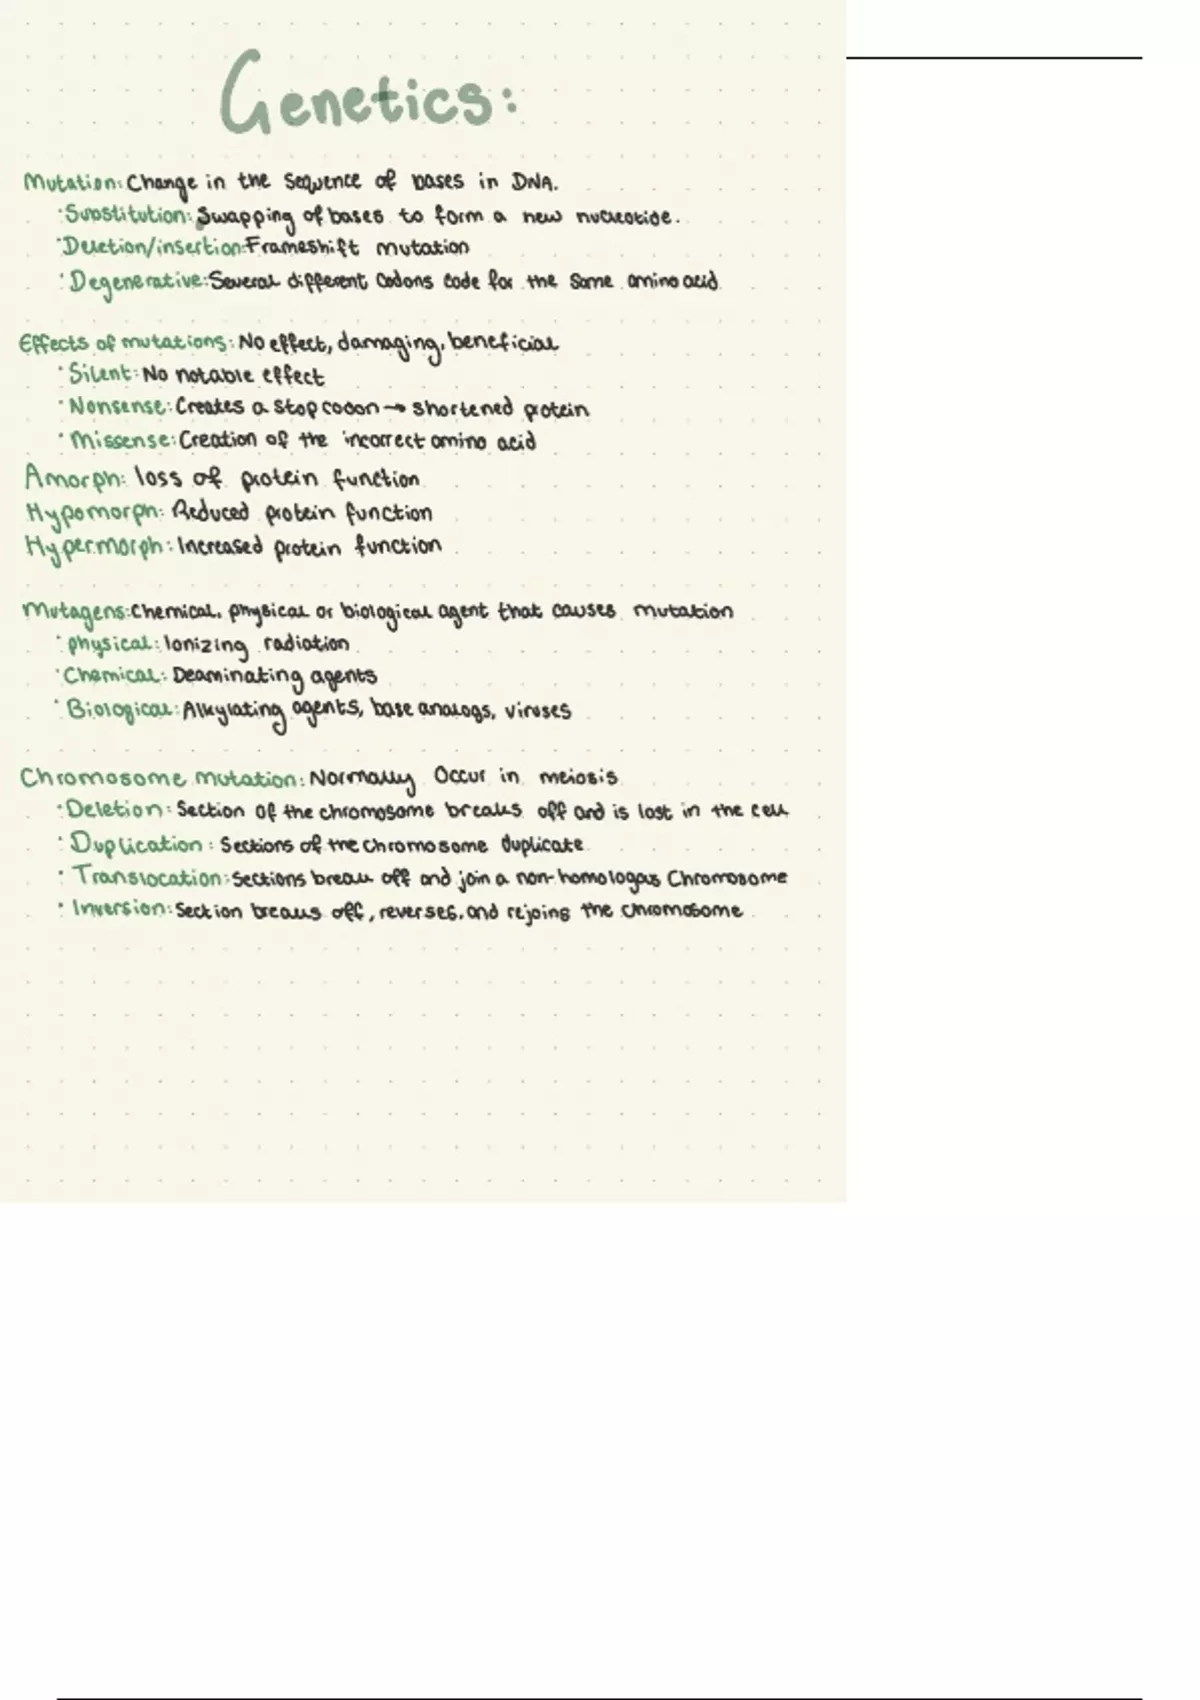 Genetics:
Mutation: Change in the sequence of bases in DNA.
·Substitution: Swapping of bases to form a new nucleotide.
·Deletion/insertion: Frameshift mutation
·Degenerative: Several different codons code for the same amino acid
Effects of mutations: No effect, damaging, beneficial
·Silent: No notable effect
·Nonsense: Creates a stop codon → shortened protein
·Missense: Creation of the incorrect amino acid
Amorph: loss of protein function
Hypomorph: Reduced protein function
Hypermorph: Increased protein function
Mutagens: Chemical, physical or biological agent that causes mutation
·physical: Ionizing radiation
·Chemical: Deaminating agents
·Biological: Alkylating agents, base analogs, viruses
Chromosome mutation: Normally Occur in meiosis
·Deletion: Section of the chromosome breaks off and is lost in the cell
·Duplication: Sections of the chromosome duplicate
·Translocation: Sections break off and join a non-homologous Chromosome
·Inversion: Section breaks off, reverses, and rejoins the chromosome